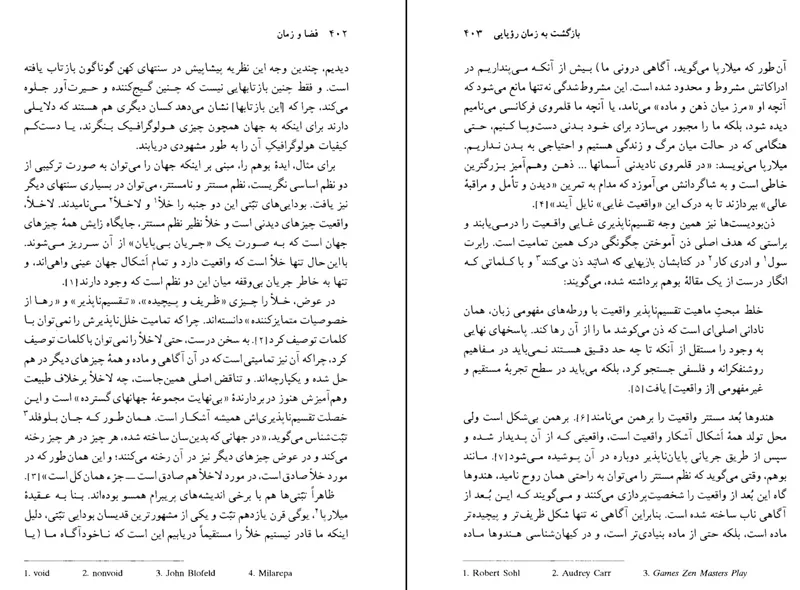 ۴۰۲ فضا و زمان
دیدیم، چندین وجه این نظریه پیشاپیش در سنتهای کهن گوناگون بازتاب یافته
است. و فقط چنین بازتابهایی نیست که چنین گیج‌کننده و حیرت‌آور جلوه
می‌کند، چرا که [این بازتابها] نشان می‌دهد کسان دیگری هم هستند که دلایلی
دارند برای اینکه به جهان همچون چیزی هـولوگرافـیک بـنگرند، یـا دست‌کم
کیفیات هولوگرافیکِ آن را به طور مشهودی دریابند.
برای مثال، ایدهٔ بوهم را، مبنی بر اینکه جهان را می‌توان به صورت ترکیبی از
دو نظم اساسی نگریست، نظم مستتر و نامستتر، می‌توان در بسیاری سنتهای دیگر
نیز یافت. بودایی‌های تبّتی این دو جنبه را خلأ۱ و لاخـلأ۲ مـی‌نامیدند. لاخـلأ،
واقعیت چیزهای دیدنی است و خلأ نظیر نظم مستتر، جایگاه زایش همهٔ چیزهای
جهان است که به صورت یک «جریان بی‌پایان» از آن سرریز می‌شوند.
بااین‌حال تنها خلأ است که واقعیت دارد و تمام اَشکال جهان عینی واهی‌اند، و
تنها به خاطر جریان بی‌وقفه میان این دو نظم است که وجود دارند[۱].
در عوض، خـلأ را چـیزی «ظـریف و پـیچیده»، «تـقسیم‌ناپذیر» و «رهـا از
خصوصیات متمایزکننده» دانسته‌اند. چرا که تمامیت خلل‌ناپذیرش را نمی‌توان بـا
کلمات توصیف کرد[۲]. به سخن درست، حتی لاخلأ را نمی‌توان با کلمات توصیف
کرد، چراکه آن نیز تمامیتی است که در آن آگاهی و ماده و همهٔ چیزهای دیگر در هم
حل شده و یکپارچه‌اند. و تناقض اصلی همین‌جاست، چه لاخلأ برخلاف طبیعت
وهم‌آمیزش هنوز دربردارندهٔ «بی‌نهایت مجموعهٔ جهانهای گسترده» است و ایـن
خصلت تقسیم‌ناپذیری‌اش همیشه آشکـار است. هـمان‌طور کـه جـان بـلوفلد۳
تبّت‌شناس می‌گوید، «در جهانی که بدین‌سان ساخته شده، هر چیز در هر چیز رخنه
می‌کند و در عوض چیزهای دیگر نیز در آن رخنه می‌کنند؛ و این همان‌طور که در
مورد خلأ صادق است، در مورد لاخلأ هم صادق است — جزء همان کل است»[۳].
ظاهراً تبّتی‌ها هم با برخی اندیشه‌های پریبرام همسو بوده‌اند. بـنا بـه عـقیدهٔ
میلارپا۴، یوگی قرن یازدهم تبّت و یکی از مشهورترین قدیسان بودایی تبّتی، دلیل
اینکه ما قادر نیستیم خلأ را مستقیماً دریابیم این است که نـاخودآگـاه مـا (یـا
1. void 2. nonvoid 3. John Blofeld 4. Milarepa
بازگشت به زمان رؤیایی ۴۰۳
آن‌طور که میلارپا می‌گوید، آگاهی درونی ما) بـیش از آنـکه مـی‌پنداریـم در
ادراکاتش مشروط و محدود شده است. این مشروط‌شدگی نه‌تنها مانع می‌شود که
آنچه او «مرز میان ذهن و ماده» می‌نامد، یا آنچه ما قلمروی فرکانسی می‌نامیم
دیده شود، بلکه ما را مجبور می‌سازد برای خـود بـدنی دست‌وپـا کـنیم، حـتی
هنگامی که در حالت میان مرگ و زندگی هستیم و احتیاجی به بـدن نـداریـم.
میلارپا می‌نویسد: «در قلمروی نادیدنی آسمانها ... ذهـن وهـم‌آمیز بـزرگترین
خاطی است و به شاگردانش می‌آموزد که مدام به تمرین «دیدن و تأمل و مراقبهٔ
عالی» بپردازند تا به درک این «واقعیت غایی» نایل آیند»[۴].
ذن‌بودیست‌ها نیز همین وجه تقسیم‌ناپذیری غـایی واقـعیت را درمـی‌یابند و
براستی که هدف اصلی ذن آموختن چگونگی درک همین تمامیت است. رابرت
سول۱ و ادری کار۲ در کتابشان بازیهایی که اساتید ذن می‌کنند۳ و با کـلماتی کـه
انگار درست از یک مقالهٔ بوهم برداشته شده، می‌گویند:
خلط مبحثِ ماهیت تقسیم‌ناپذیر واقعیت با ورطه‌های مفهومی زبان، همان
نادانی اصلی‌ای است که ذن می‌کوشد ما را از آن رها کند. پاسخهای نهایی
به وجود را مستقل از آنکه تا چه حد دقـیق هسـتند نـمی‌باید در مـفاهیم
روشنفکرانه و فلسفی جستجو کرد، بلکه می‌باید در سطح تجربهٔ مستقیم و
غیرمفهومی [از واقعیت] یافت[۵].
هندوها بُعد مستتر واقعیت را برهمن می‌نامند[۶]. برهمن بی‌شکل است ولی
محل تولد همهٔ اَشکال آشکار واقعیت است، واقعیتی کـه از آن پـدیدار شـده و
سپس از طریق جریانی پایان‌ناپذیر دوباره در آن پـوشیده مـی‌شود[۷]. مـانند
بوهم، وقتی می‌گوید که نظم مستتر را می‌توان به راحتی همان روح نامید، هندوها
گاه این بُعد از واقعیت را شخصیت‌پردازی می‌کنند و مـی‌گویند کـه ایـن بُـعد از
آگاهی ناب ساخته شده است. بنابراین آگاهی نه تنها شکل ظریف‌تر و پیچیده‌تر
ماده است، بلکه حتی از ماده بنیادی‌تر است، و در کیهان‌شناسی هـندوها مـاده
1. Robert Sohl 2. Audrey Carr 3. Games Zen Masters Play